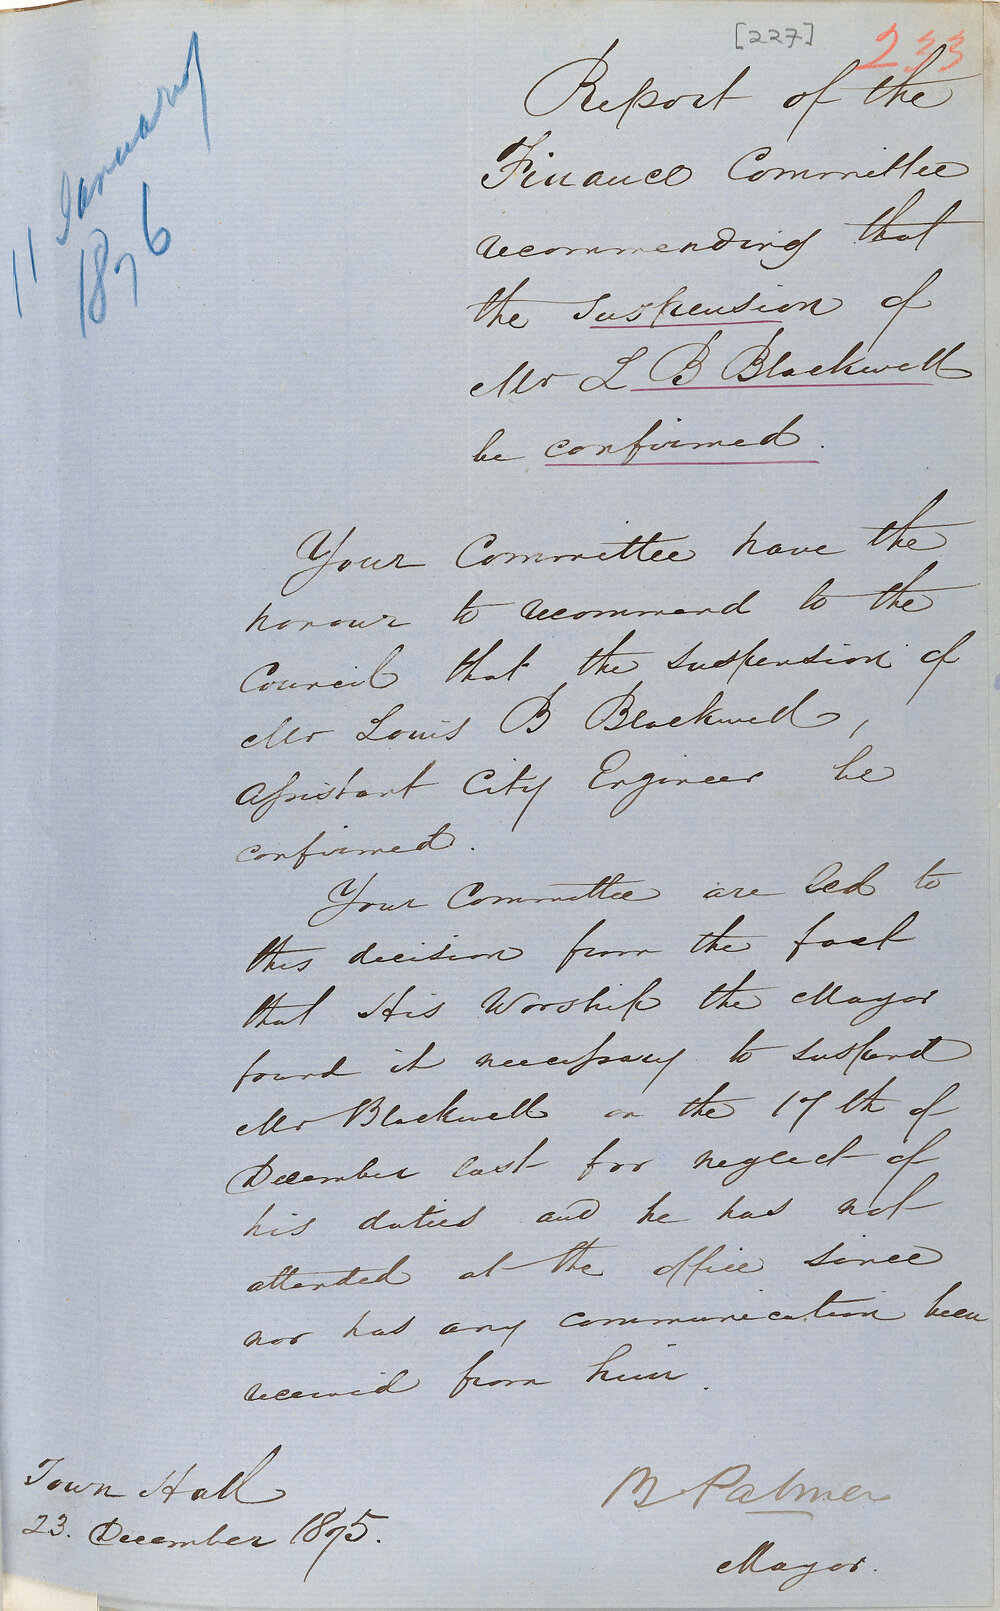 [227]
233
11 January
1876
Report of the
Finance Committee
recommending that
the suspension of
Mr L B Blackwell
be confirmed.
Your Committee have the
honour to recommend to the
Council that the suspension of
Mr Louis B Blackwell,
Assistant City Engineer be
confirmed.
Your Committee are led to
this decision from the fact
that His Worship the Mayor
found it necessary to suspend
Mr Blackwell on the 17th of
December last for neglect of
his duties and he has not
attended at the office since
nor has any communication been
received from him.
Town Hall
23. December 1875.
B Palmer
Mayor.